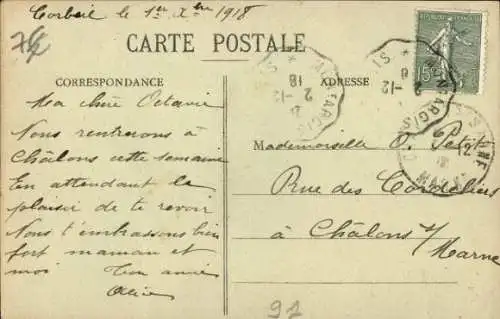 Corbeil le 1er Xbre 1918
CARTE POSTALE
CORRESPONDANCE
ADRESSE
Ma chère Octavie
Nous rentrerons à
Châlons cette semaine
En attendant le
plaisir de te revoir
Nous t'embrassons bien
fort maman et
moi Ton amie
Alice
Mademoiselle O. Petit
Rue des Cordeliers
à Châlons s/
Marne
15
MONTARGIS
2 -12
18
92